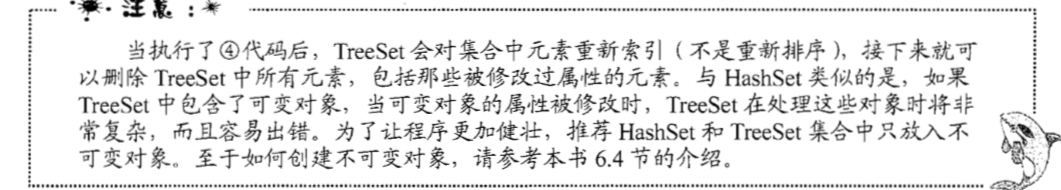 注意：
当执行了④代码后，TreeSet 会对集合中元素重新索引（不是重新排序），接下来就可
以删除 TreeSet 中所有元素，包括那些被修改过属性的元素。与 HashSet 类似的是，如果
TreeSet 中包含了可变对象，当可变对象的属性被修改时，TreeSet 在处理这些对象时将非
常复杂，而且容易出错。为了让程序更加健壮，推荐 HashSet 和 TreeSet 集合中只放入不
可变对象。至于如何创建不可变对象，请参考本书 6.4 节的介绍。